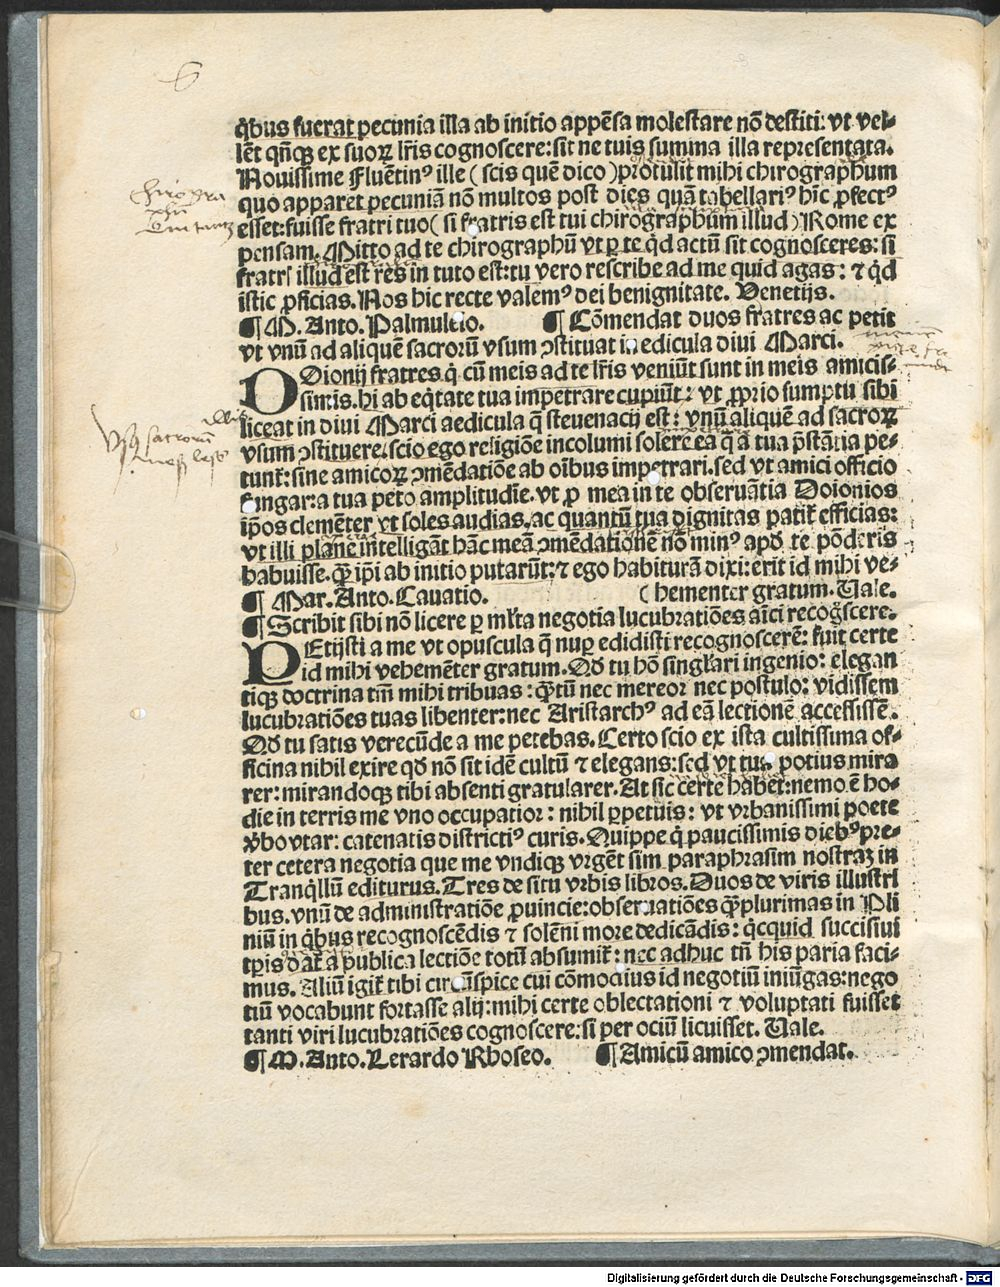 6
q̃bus fuerat pecunia illa ab initio appẽsa molestare nõ destiti: vt vel-
lẽt qñqꝫ ex suoꝝ lr̃is cognoscere: sit ne tuis summa illa representata.
Nouissime Fluẽtinꝰ ille ( scis quẽ dico ) protulit mihi chirographum
quo apparet pecuniã nõ multos post dies quã tabellariꝰ hic̃ ꝓfectꝰ
esset: fuisse fratri tuo ( si fratris est tui chirographum illud ) Rome ex
pensam. Mitto ad te chirographũ vt ꝑ te qd̃ actũ sit cognosceres: si
fratris illud est res in tuto est: tu vero rescribe ad me quid agas: ⁊ qd̃
istic ꝓficias. Nos hic recte valemꝰ dei benignitate. Venetijs.
¶ M. Anto. Palmuleio. ¶ Cõmendat duos fratres ac petit
vt vnũ ad aliquẽ sacrorũ vsum ꝯstituat in edicula diui Marci.
DOionij fratres q̃ cũ meis ad te lr̃is veniũt sunt in meis amicis-
simis. hi ab eq̃tate tua impetrare cupiũt: vt ꝓprio sumptu sibi
liceat in diui Marci aedicula q̃ steuenacij est: vnũ aliquẽ ad sacroꝝ
vsum ꝯstituere. scio ego religiõe incolumi solere ea q̃ a tua p̃stãtia pe-
tunt̃: sine amicoꝝ ꝯmẽdatiõe ab oĩbus impetrari. sed vt amici officio
fungar: a tua peto amplitudĩe. vt ꝓ mea in te obseruãtia Doionios
ip̃os clemẽter vt soles audias. ac quantũ tua dignitas patit̃ efficias:
vt illi plane intelligãt hãc meã ꝯmẽdationẽ nõ minꝰ apd̃ te põderis
habuisse. q̃ȝ ip̃i ab initio putarũt: ⁊ ego habiturã dixi: erit id mihi ve-
¶ Mar. Anto. Cauatio. ( hementer gratum. Uale.
¶ Scribit sibi nõ licere ꝑ ml̃ta negotia lucubratiões aĩci recog̃scere.
PEtijsti a me vt opuscula q̃ nuꝑ edidisti recognoscerẽ: fuit certe
id mihi vehemẽter gratum. Qd̃ tu hõ singl̃ari ingenio: elegan
tiqꝫ doctrina tm̃ mihi tribuas: q̃ȝtũ nec mereor nec postulo: vidissem
lucubratiões tuas libenter: nec Aristarchꝰ ad eã lectionẽ accessissẽ.
Qd̃ tu satis verecũde a me petebas. Certo scio ex ista cultissima of-
ficina nihil exire qd̃ nõ sit idẽ cultũ ⁊ elegans: sed vt tua potius mira
rer: mirandoqꝫ tibi absenti gratularer. At sic certe habet̃: nemo ẽ ho-
die in terris me vno occupatior: nihil ꝑpetuis: vt vrbanissimi poete
v̾bo vtar: catenatis districtiꝰ curis. Quippe q̃ paucissimis diebꝰ pre-
ter cetera negotia que me vndiqꝫ vrgẽt sim paraphrasim nostraꝫ in
Tranq̃llũ editurus. Tres de situ vrbis libros. Duos de viris illustri
bus. vnũ de administratiõe ꝓuincie: obseruatiões q̃ȝplurimas in Pli
niũ in q̃bus recognoscẽdis ⁊ solẽni more dedicãdis: q̃cquid succisiui
tꝑis dat̃ a publica lectiõe totũ absumit̃: nec adhuc tñ his paria faci-
mus. Aliũ igit̃ tibi circũspice cui cõmodius id negotiũ iniũgas: nego
tiũ vocabunt fortasse alij: mihi certe oblectationi ⁊ voluptati fuisset
tanti viri lucubratiões cognoscere: si per ociũ licuisset. Uale.
¶ M. Anto. Lerardo Rhoseo. ¶ Amicũ amico ꝯmendat.
Digitalisierung gefördert durch die Deutsche Forschungsgemeinschaft - DFG